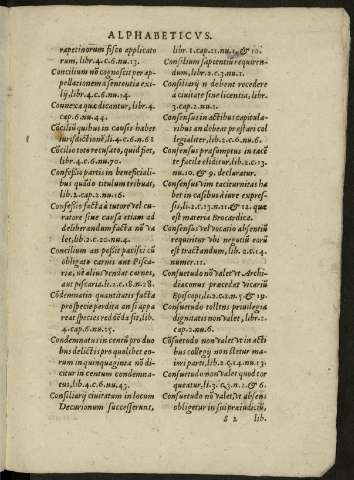 ALPHABETICVS.
rapetinorum fisco applicato
rum, libr. 4. c. 6. nu. 13.
Concilium nõ cognoscit per ap-
pellationem à sententia exi-
lij, libr. 4. c. 6. nu. 14.
Connexa quæ dicantur, libr. 4.
cap. 6. nu. 44.
Cõciliũ quibus in causis habet
iurisdictionẽ, li. 4. c. 6. n. 61
Cõcilio toto recusato, quid fiet,
libr. 4. c. 6. nu. 70.
Confessio partis in beneficiali-
bus quãdo titulum tribuat,
lib. 2. cap. 2. nu. 16.
Confessio facta à tutore vel cu-
ratore siue causa etiam ad
deliberandum facta nõ va
let, lib. 2. c. 20. nu. 4.
Concilium an possit pacisci cũ
obligato carnes aut Pisca-
ria, ne alius vendat carnes,
aut piscaria. li. 2. c. 18. n. 28.
Cõdemnatio quantitatis facta
pro specie perdita an si appa
reat species reddẽda sit, lib.
4. cap. 6. nu. 25.
Condemnatus in centũ pro duo
bus delictis pro quolibet eo-
rum in quinquaginta nõ di-
citur in centum condemna-
tus, lib. 4. c. 6. nu. 43.
Consiliarij ciuitatum in locum
Decurionum successerunt,
libr. 1. cap. 21. nu. 1. & 10.
Consilium sapientũ requiren-
dum, libr. 2. c. 3. nu. 1.
Consiliarij n debent recedere
à ciuitate sine licentia, libr.
3. cap. 2. nu. 1.
Consensus in actibus capitula-
ribus an debeat præstari col
legialiter, lib. 2. c. 6. nu. 6.
Consensus præsumptus in tacẽ
te facile eliditur, lib. 2. c. 13.
nu. 10. & 9. declaratur.
Consensus vim taciturnitas ha
bet in casibus à iure expres-
sis, li. 2. c. 13. n. 11. & 12. quæ
est materia Brocardica.
Consensus vel vocatio absentiũ
requiritur vbi negotiũ eorũ
est tractandum, lib. 2. c. 14.
numer. 11.
Consuetudo nõ valet vt Archi-
diaconus præcedat vicariũ
Episcopi, li. 2. c. 2. n. 5. & 19.
Consuetudo tollens priuilegia
dignitatis non valet, libr. 2.
cap. 2. nu. 6.
Cõsuetudo non valet vt in acti
bus collegij non stetur ma-
iori parti, lib. 2. c. 14. nu. 13.
Consuetudo non valet quod tor
queatur, li. 3. c. 3. n. 2. & 6.
Consuetudo nõ valet, vt absens
obligetur in sui præiudiciũ,
S 2 lib.